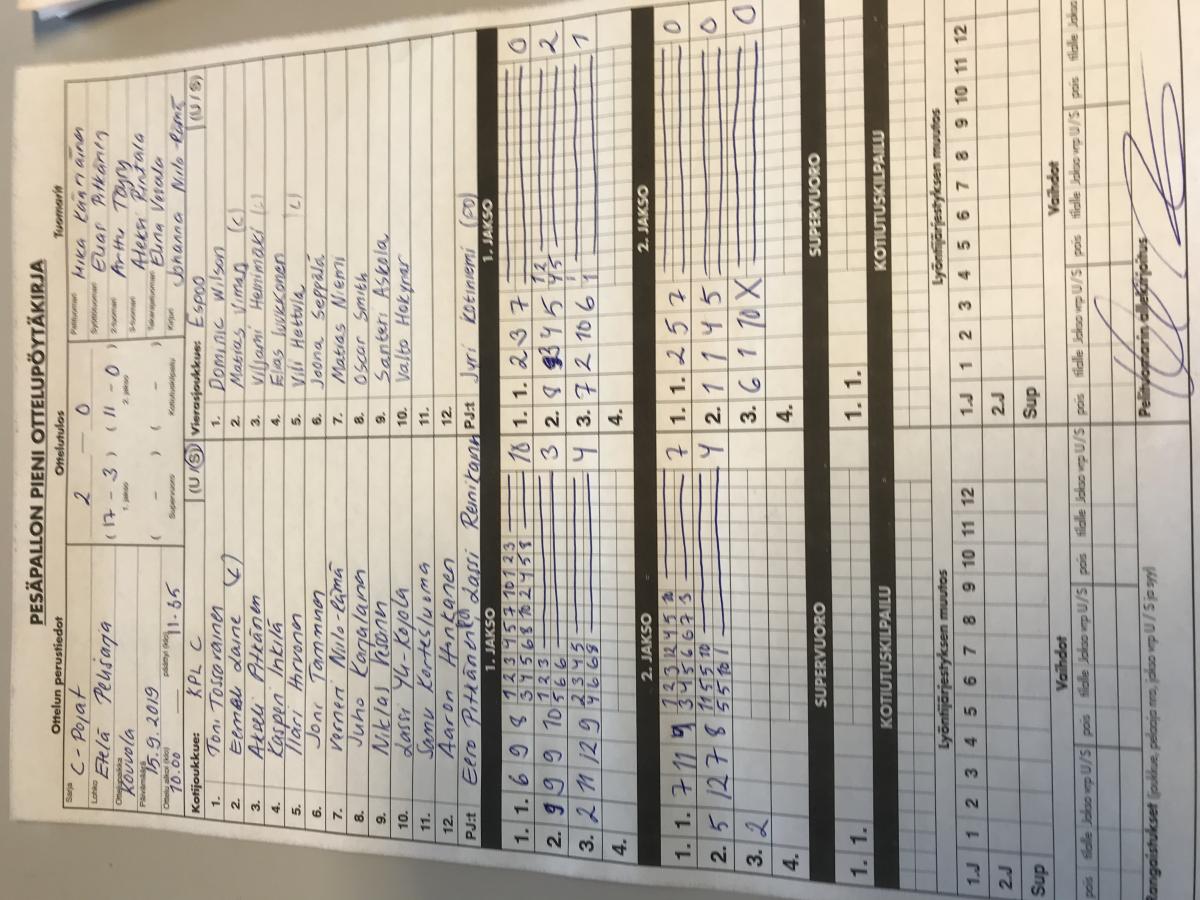 PESÄPALLON PIENI OTTELUPÖYTÄKIRJA
Ottelun perustiedot Ottelutulos Tuomarit
Sarja C-Pojat
Lohko Etelä Pelisarja
Ottelupaikka Kouvola
Päivämäärä 15.9.2019
Ottelu alkoi (klo) 10.00 päättyi (klo) 11.55
2 0
(17 - 3) (11 - 0)
1. jakso 2. jakso
( - ) ( - )
Supervuoro Kotiutuskilpailu
Pelituomari Mika Kääriäinen
Syöttötuomari Elias Pitkänen
2-tuomari Arttu Töyry
3-tuomari Aleksi Rintala
Takarajatuomari Elina Vavala
Kirjuri Johanna Niilo-Rämä
Kotijoukkue: KPL C (U/S) Vierasjoukkue: Espoo (U/S)
1. Toni Tosorainen 1. Dominic Wilson
2. Eemeli Laine (C) 2. Matias Viman (C)
3. Akseli Pitkänen 3. Viljami Heinimäki (L)
4. Kasperi Inkilä 4. Elias Luukkonen
5. Ilari Hirvonen 5. Vili Hettula (L)
6. Joni Tamminen 6. Joona Seppälä
7. Verneri Niilo-Rämä 7. Matias Niemi
8. Juho Kanalama 8. Oscar Smith
9. Niklas Kisonen 9. Santeri Askola
10. Lassi Yli-Kojola 10. Valto Hokynar
11. Samu Kortesluoma 11.
12. Aaron Hankanen 12.
PJ:t Eero Pitkänen Lassi Reinikainen PJ:t Jyri Kotiniemi (PD)
1. JAKSO 1. JAKSO
1. 1. 6 9 8 1 2 3 4 5 7 10 1 2 3 10 1. 1. 2 3 7 0
3 4 5 6 8 10 2 4 5 8
2. 9 9 9 10 1 2 3 3 2. 8 9 3 4 5 12 2
5 6 6 45
3. 2 11 12 9 2 3 4 5 4 3. 7 2 10 6 1 1
4 6 6 8
4. 4.
2. JAKSO 2. JAKSO
1. 1. 7 11 9 1 2 3 1 2 4 5 10 7 1. 1. 2 5 7 0
3 4 5 6 6 7 3
2. 5 12 7 8 11 5 5 10 4 2. 1 1 4 5 0
5 5 10 1
3. 2 3. 6 1 10 X 0
4. 4.
SUPERVUORO SUPERVUORO
1. 1. 1. 1.
KOTIUTUSKILPAILU KOTIUTUSKILPAILU
Lyöntijärjestyksen muutos Lyöntijärjestyksen muutos
1.J 1 2 3 4 5 6 7 8 9 10 11 12 1.J 1 2 3 4 5 6 7 8 9 10 11 12
2.J 2.J
Sup Sup
Vaihdot Vaihdot
pois tilalle Jakso vrp U / S pois tilalle Jakso vrp U / S pois tilalle Jakso vrp U / S pois tilalle Jakso vrp U / S pois tilalle Jakso
Rangaistukset (joukkue, pelaaja nro, jakso vrp U / S ja syy) Pelituomarin allekirjoitus